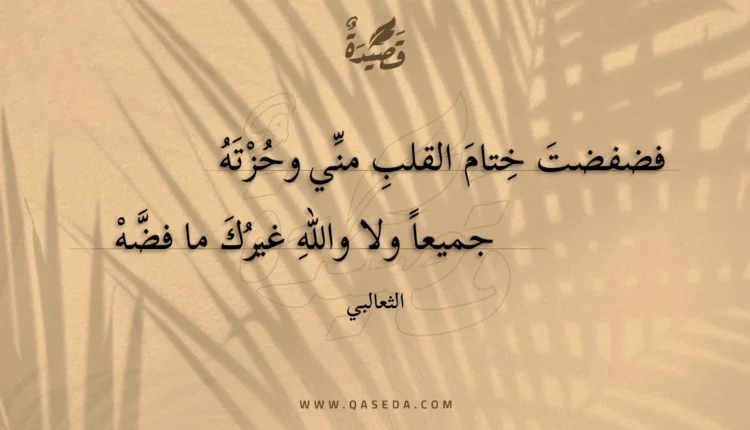 قَصِيدَةٌ
فضفضتَ خِتامَ القلبِ منِّي وحُزْتَهُ
جميعاً ولا واللهِ غيرُكَ ما فضَّهْ
الثعالبي
WWW.QASEDA.COM